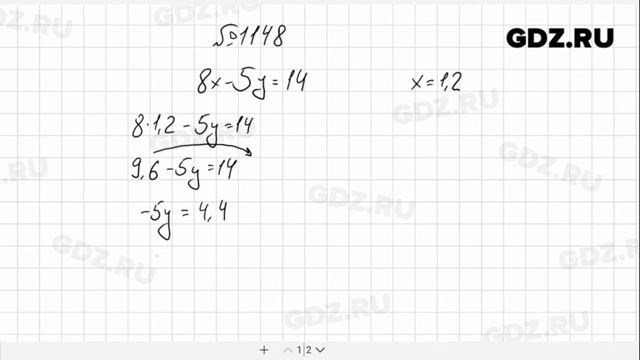 №1148
GDZ.RU
8x-5y=14
x=1,2
8·1,2-5y=14
9,6-5y=14
-5y=4,4
GDZ.RU
GDZ.RU
GDZ.RU
GDZ.RU
GDZ.RU
GDZ.RU
GDZ.RU
1 2